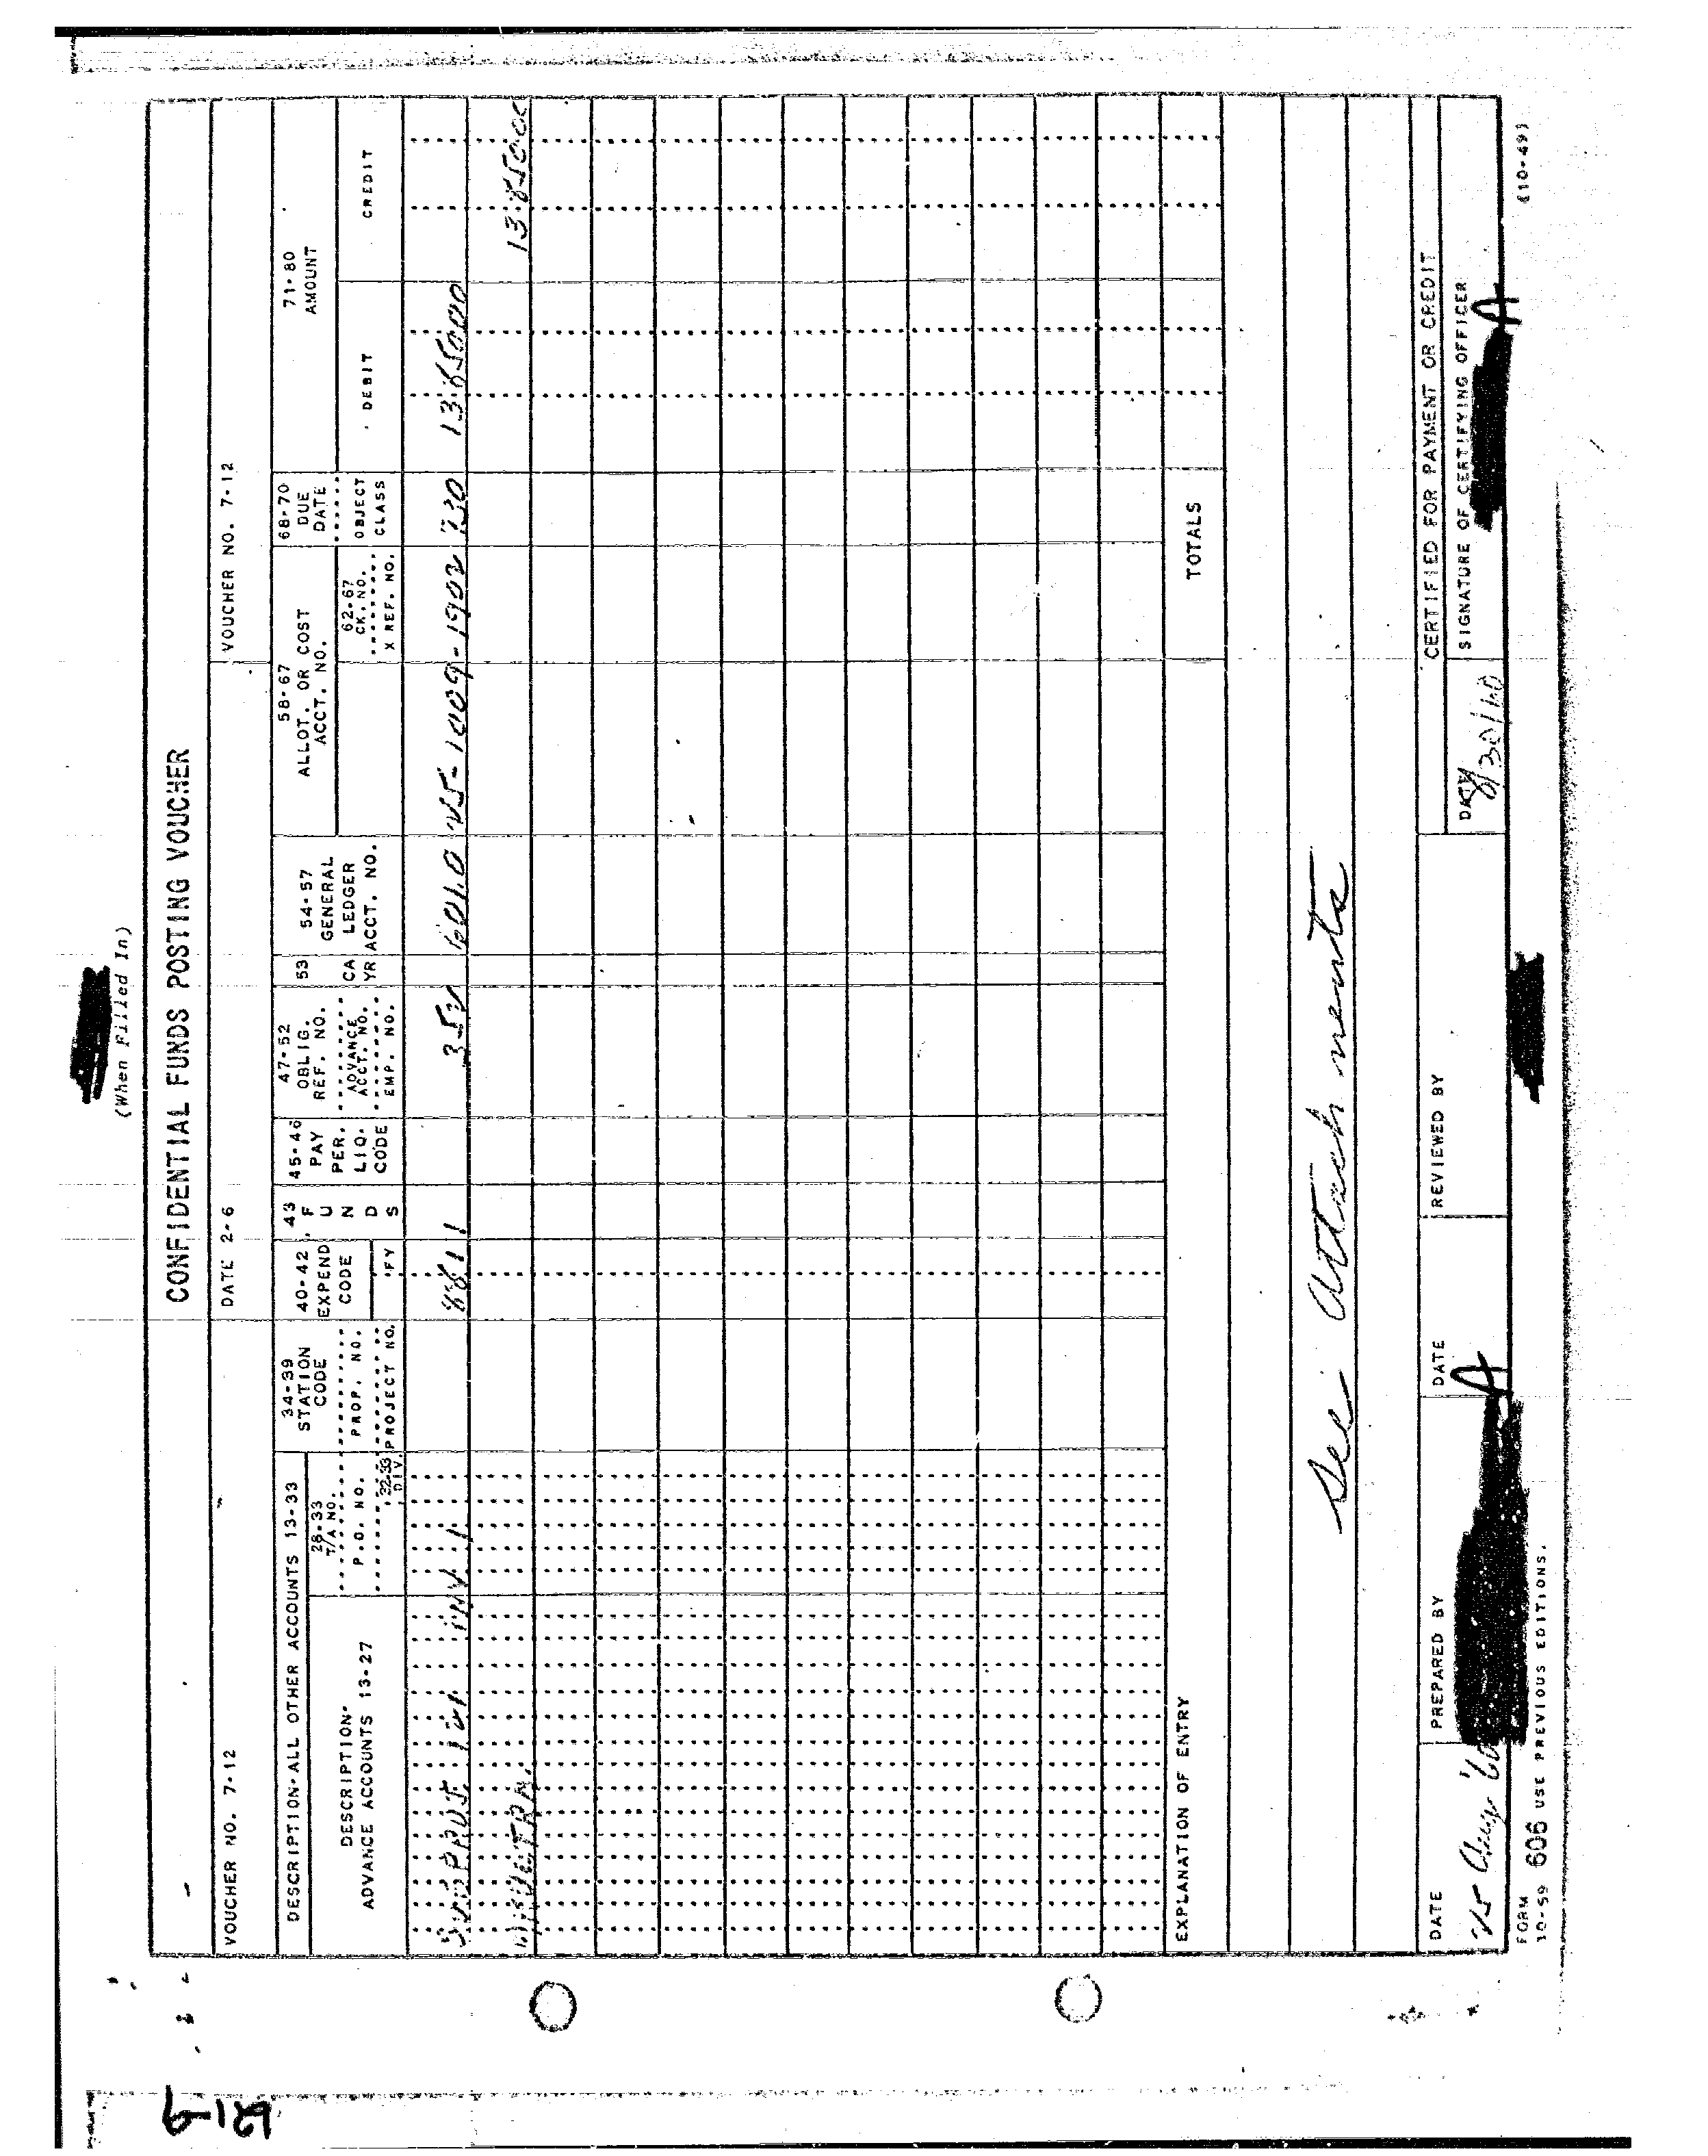 (When Filled In)
CONFIDENTIAL FUNDS POSTING VOUCHER
VOUCHER NO. 7-12 DATE 2-6 VOUCHER NO. 7-12
DESCRIPTION-ALL OTHER ACCOUNTS 13-33
DESCRIPTION-
ADVANCE ACCOUNTS 13-27
28-33
T/A NO.
P.O. NO.
32-33
DIV.
34-39
STATION
CODE
PROP. NO.
PROJECT NO.
40-42
EXPEND
CODE
FY
43
F
U
N
D
S
45-46
PAY
PER.
LIQ.
CODE
47-52
OBLIG.
REF. NO.
ADVANCE
ACCT. NO.
EMP. NO.
53
CA
YR
54-57
GENERAL
LEDGER
ACCT. NO.
58-67
ALLOT. OR COST
ACCT. NO.
62-67
CK. NO.
X REF. NO.
68-70
DUE
DATE
OBJECT
CLASS
71-80
AMOUNT
DEBIT CREDIT
INV 1 881 1 352 601.0 25-1009-1902 730 13 850 00
13 850 00
TOTALS
EXPLANATION OF ENTRY
See Attachments
CERTIFIED FOR PAYMENT OR CREDIT
DATE PREPARED BY DATE REVIEWED BY DATE SIGNATURE OF CERTIFYING OFFICER
25 Aug '60 A 8/30/60 A
FORM
10-59 606 USE PREVIOUS EDITIONS. (10-49)
6-129